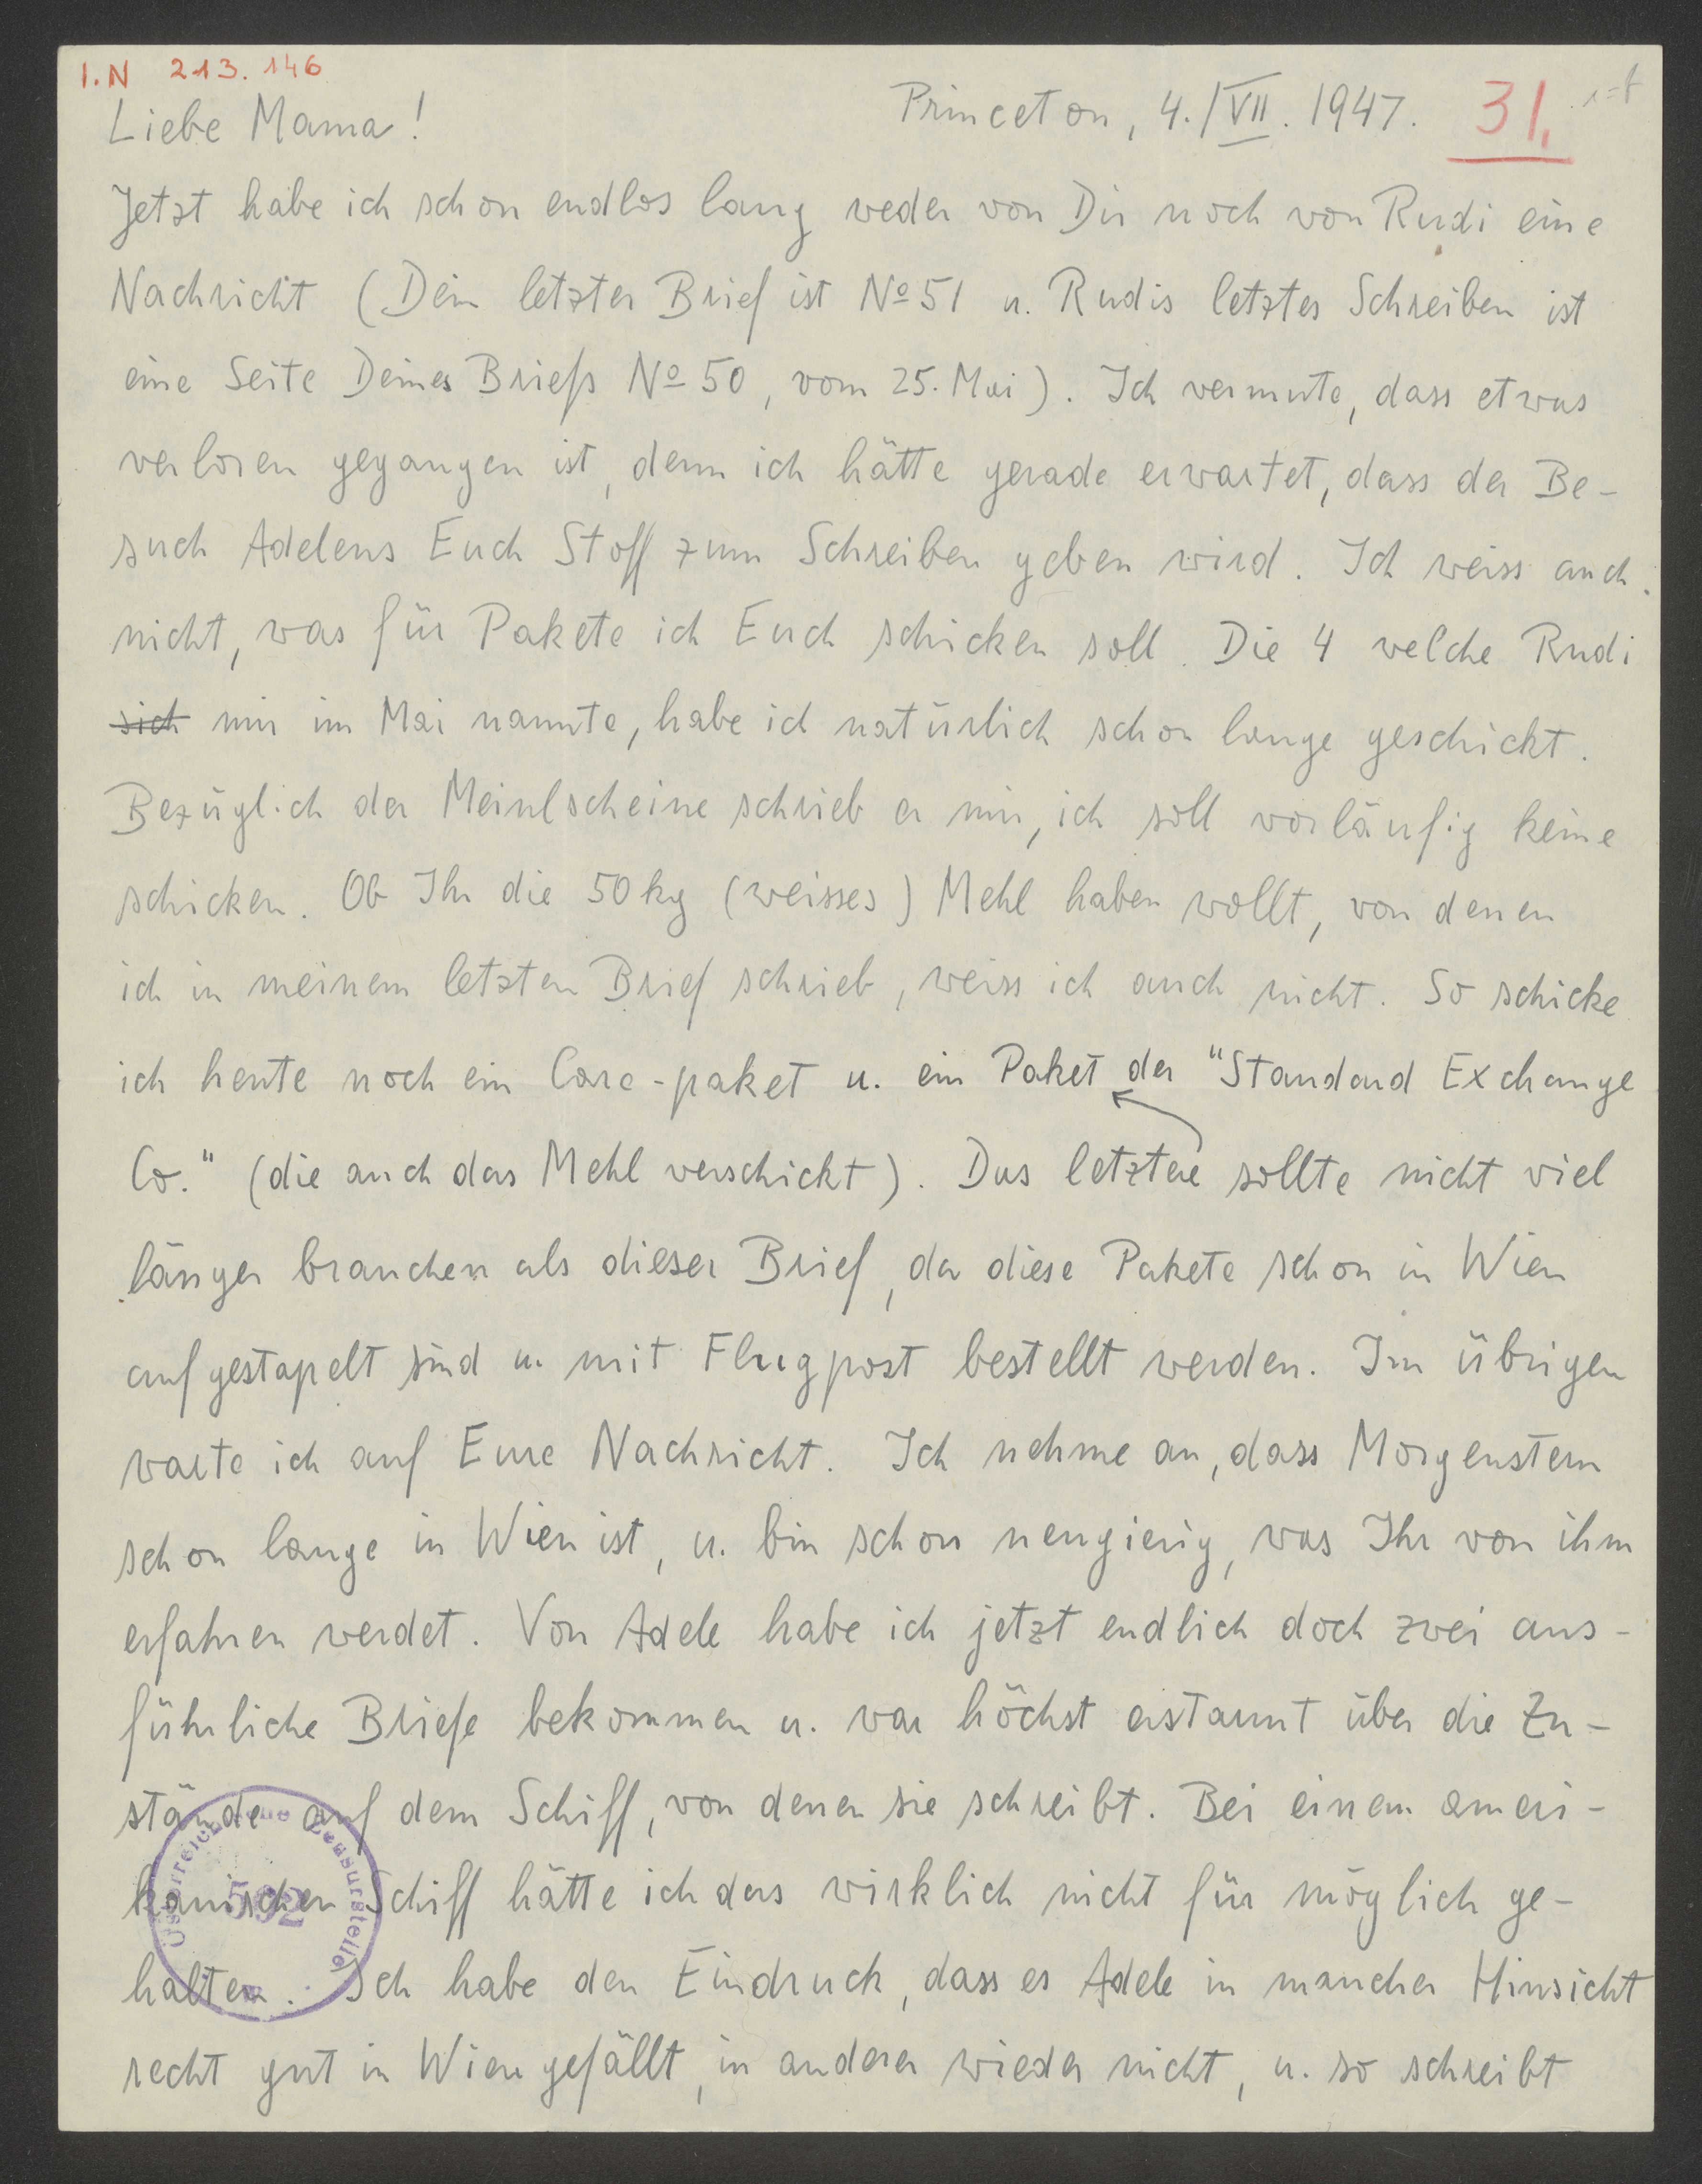 I.N 213.146
Princeton, 4./VII. 1947. 31.
Liebe Mama!
Jetzt habe ich schon endlos lang weder von Dir noch von Rudi eine
Nachricht (Dein letzter Brief ist No 51 u. Rudis letztes Schreiben ist
eine Seite Deines Briefs No 50, vom 25. Mai). Ich vermute, dass etwas
verloren gegangen ist, denn ich hätte gerade erwartet, dass der Be-
such Adelens Euch Stoff zum Schreiben geben wird. Ich weiss auch
nicht, was für Pakete ich Euch schicken soll. Die 4 welche Rudi
sich mir im Mai nannte, habe ich natürlich schon lange geschickt.
Bezüglich der Meinlscheine schrieb er mir, ich soll vorläufig keine
schicken. Ob Ihr die 50 kg (weisses) Mehl haben wollt, von denen
ich in meinem letzten Brief schrieb, weiss ich auch nicht. So schicke
ich heute noch ein Care-paket u. ein Paket der "Standard Exchange
Co." (die auch das Mehl verschickt). Das letztere sollte nicht viel
länger brauchen als dieser Brief, da diese Pakete schon in Wien
aufgestapelt sind u. mit Flugpost bestellt werden. Im übrigen
warte ich auf Eure Nachricht. Ich nehme an, dass Morgenstern
schon lange in Wien ist, u. bin schon neugierig, was Ihr von ihm
erfahren werdet. Von Adele habe ich jetzt endlich doch zwei aus-
führliche Briefe bekommen u. war höchst erstaunt über die Zu-
stände auf dem Schiff, von denen sie schreibt. Bei einem ameri-
kanischen Schiff hätte ich das wirklich nicht für möglich ge-
halten. Ich habe den Eindruck, dass es Adele in mancher Hinsicht
recht gut in Wien gefällt, in anderer wieder nicht, u. so schreibt
Österreichische Zensurstelle
592